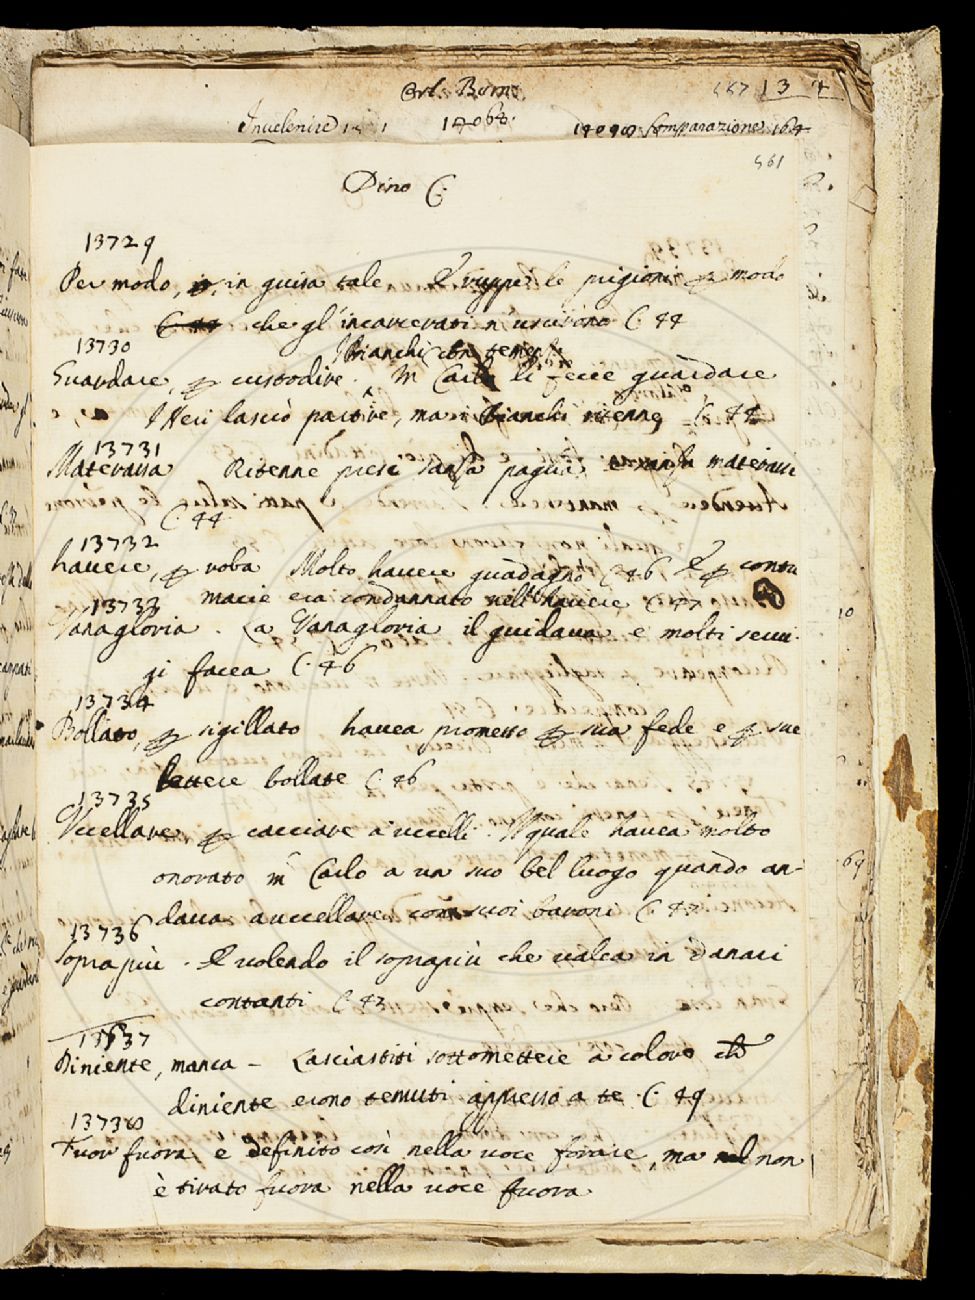 Orl. Barn.
Invelenire 1 1 14068. 14098 Comparazione 164
561
Dino C.
13729
Per modo, in guisa tale E ruppe le prigioni ꝑ modo
che gl'incarcerati n' uscirono C. 44
13730
I Bianchi con temer
Guardare, ꝑ custodire. M. Carlo li fece guardare
I Neri lasciò partire, ma i Bianchi ritenne C. 44
13731
Materassa Ritenne presi sanza paglia e sanza materassi
C. 44
13732
havere, ꝑ roba Molto havere guadagnò C. 46 E ꝑ contu
macie era condannato nell'havere C. 47
13733
Vanagloria. La Vanagloria il guidava e molti servi-
gi facea C. 46
13734
Bollato, ꝑ sigillato havea promesso ꝑ sua fede e ꝑ sue
lettere bollate C. 46
13735
Uccellare ꝑ cacciare a uccelli. Il quale havea molto
onorato M. Carlo a un suo bel luogo quando an-
dava a uccellare con suoi baroni C. 47
13736
Soprapiù. E volendo il soprapiù che valea in danari
contanti C. 43
13737
Diniente, manca - Lasciastiti sottomettere a coloro che
diniente erono tenuti appresso a te C. 49
13738
Fuor fuora è definito così nella voce forare, ma non
è tirato fuora nella voce fuora